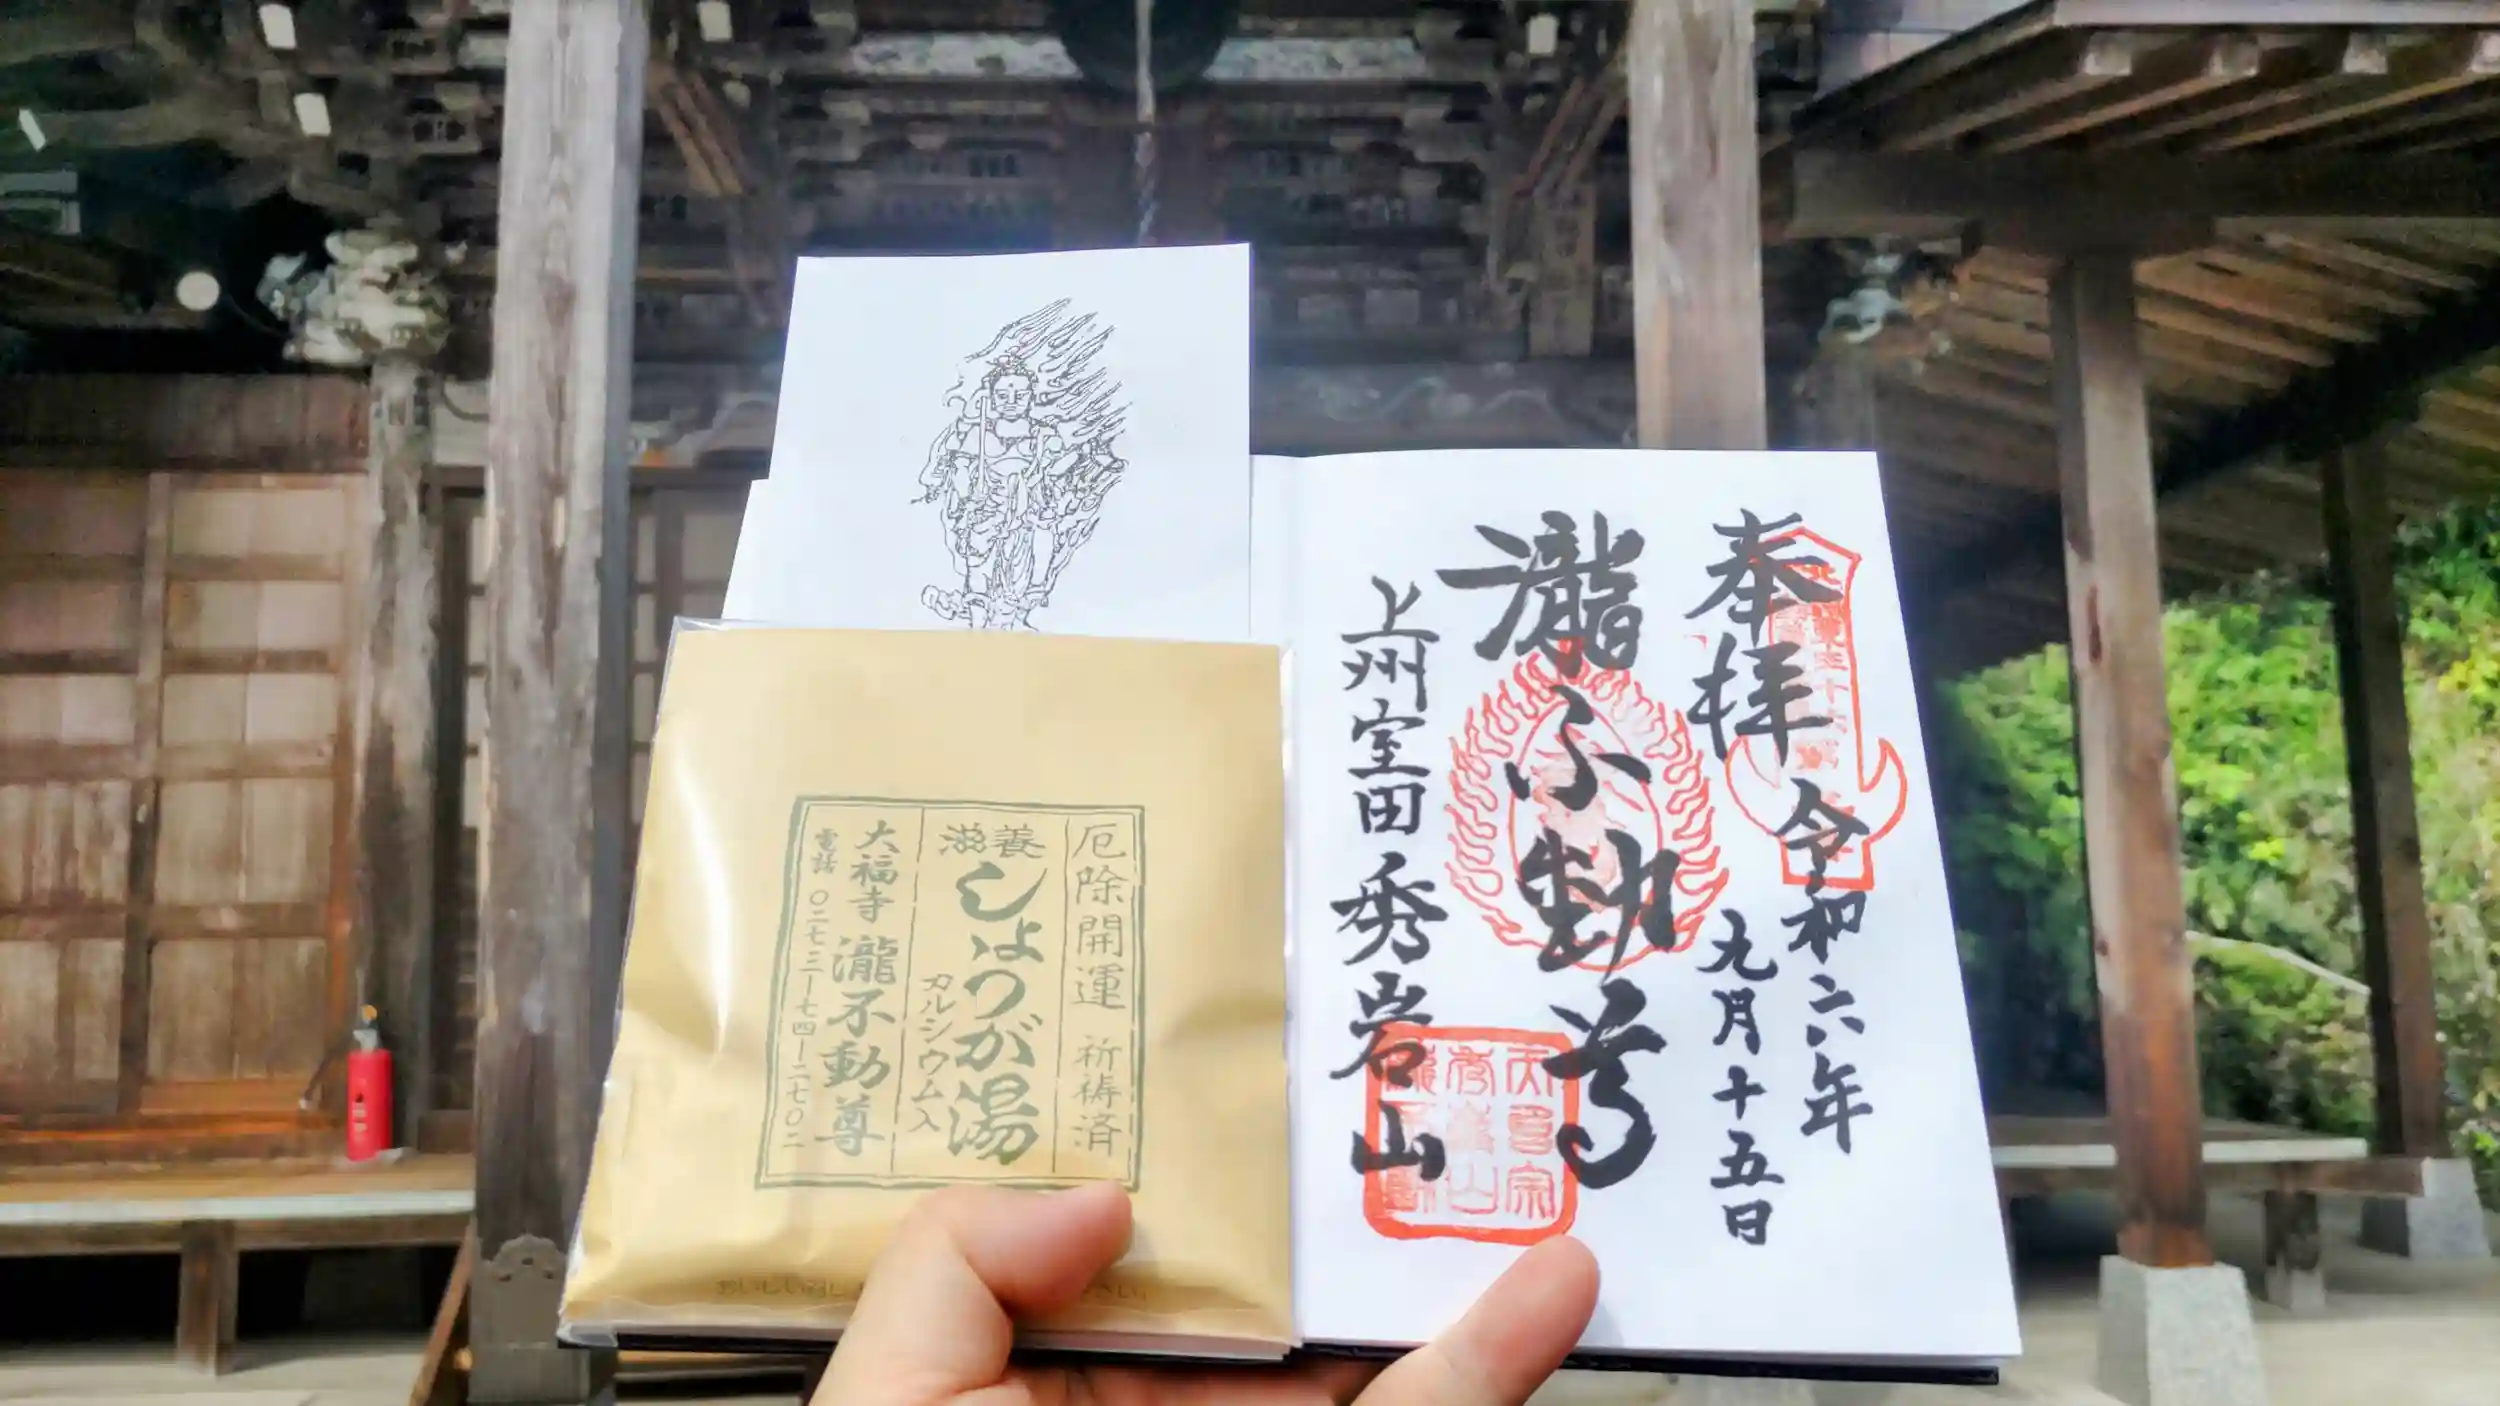 奉拝
令和六年
九月十五日
瀧不動尊
上州室田秀岩山
厄除開運 祈祷済
滋養
しょうが湯
カルシウム入
大福寺 瀧不動尊
電話 〇二七三ー七四ー二七〇二